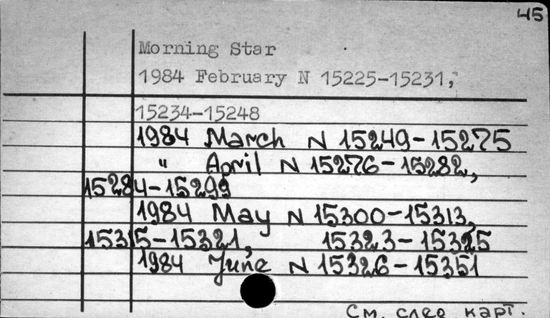 45
Morning Star
1984 February N 15225-15231,
15234-15248
1984 March N 15249-15275
" April N 15276-15282,
15284-15299
1984 May N 15300-15313,
15315-15321, 15323-15325
1984 June N 15326-15351
См. след карт.